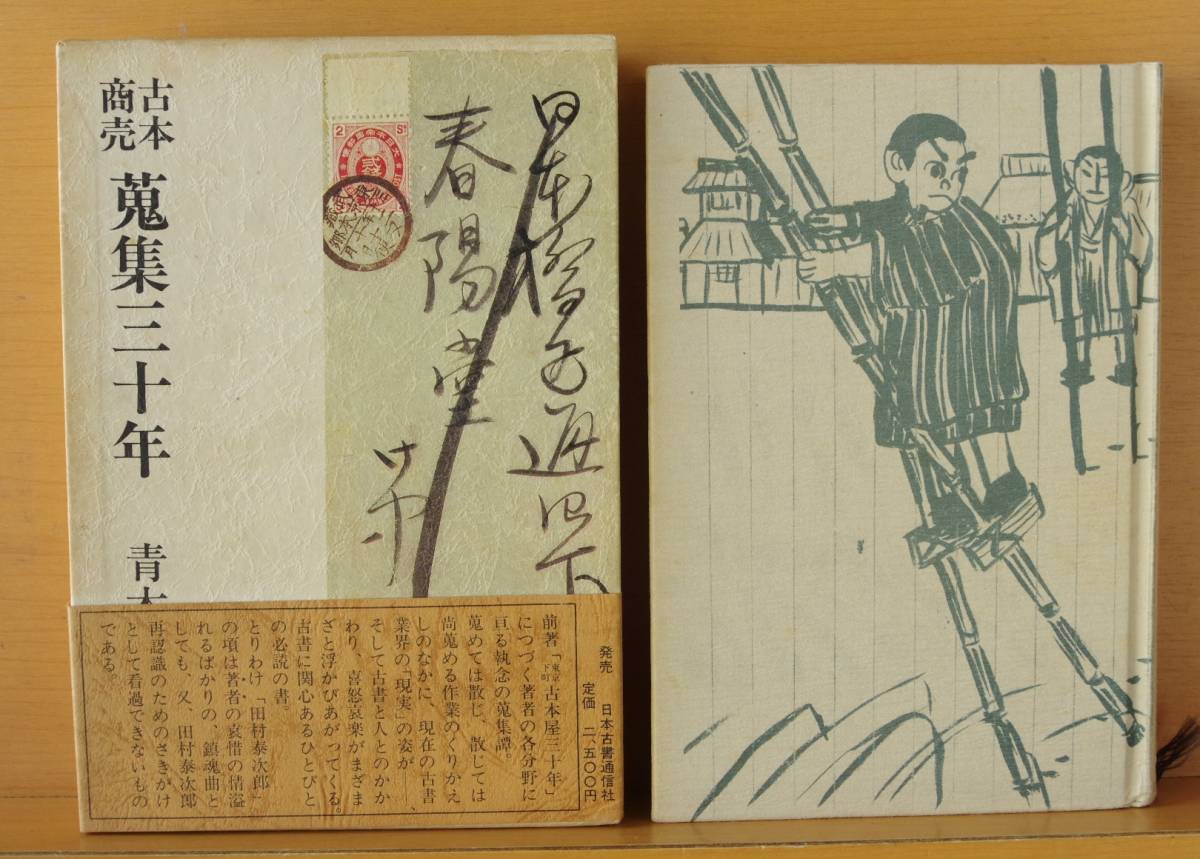 古本
商売
蒐集三十年
青木
日本橋区通四丁
春陽堂
2 Sⁿ
貳錢
前著「東京下町古本屋三十年」
につづく著者の各分野に
亘る執念の蒐集譚。
蒐めては散じ、散じては
尚蒐める作業のくりかえ
しのなかに、現在の古書
業界の「現実」の姿が──
そして古書と人とのかか
わり、喜怒哀楽がまざま
ざと浮かびあがってくる。
古書に関心あるひとびと
の必読の書。
とりわけ「田村泰次郎」
の項は著者の哀惜の情溢
れるばかりの、鎮魂曲と
しても、又、田村泰次郎
再認識のためのさきがけ
として看過できないもの
である。
発売 日本古書通信社
定価 二八五〇〇円